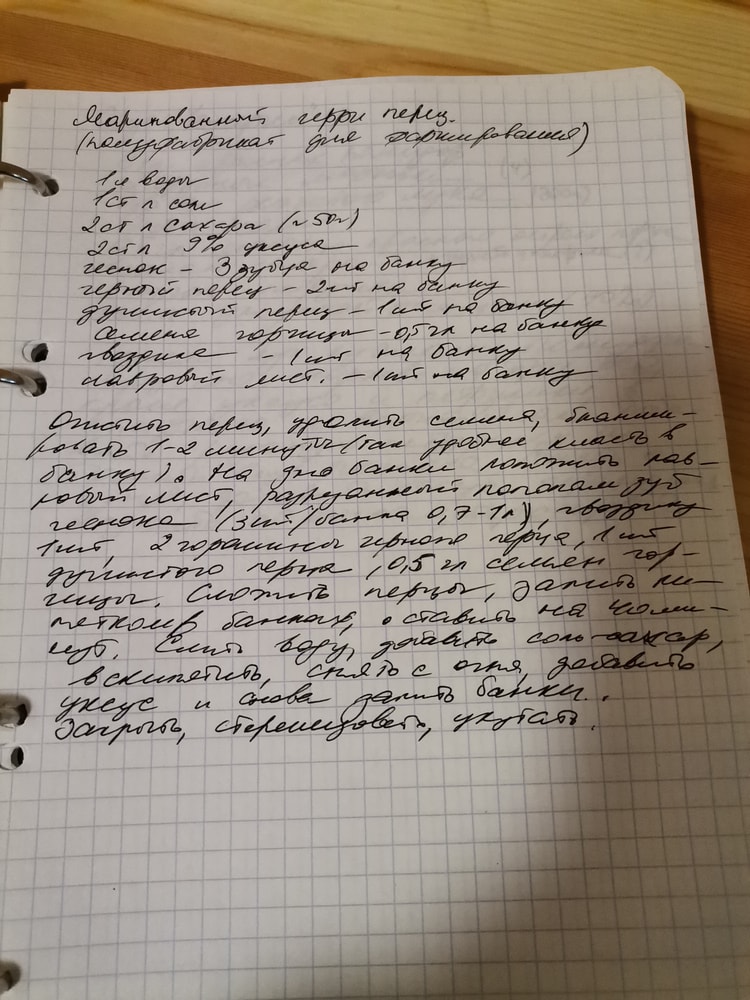 Маринованный черри перец.
(полуфабрикат для фарширования)
1 л воды
1 ст л соли
2 ст л сахара (~50г)
2 ст л 9% уксуса
чеснок - 3 зубца на банку
черный перец - 2шт на банку
душистый перец - 1 шт на банку
семена горчицы - 0,5 чл на банку
гвоздика - 1 шт на банку
лавровый лист. - 1 шт на банку
Очистить перец, удалить семена, бланши-
ровать 1-2 минуты (так удобнее класть в
банку). На дно банки положить лав-
ровый лист, разрезанный пополам зуб
чеснока (3шт/банка 0,7-1л), гвоздику
1шт, 2 горошины черного перца, 1 шт
душистого перца, 0,5 чл семян гор-
чицы. Сложить перцы, залить ки-
пятком банки, оставить на 40 ми-
нут. Слить воду, добавить соль-сахар,
вскипятить, снять с огня, добавить
уксус и снова залить банки.
Закрыть, стерилизовать, укутать.